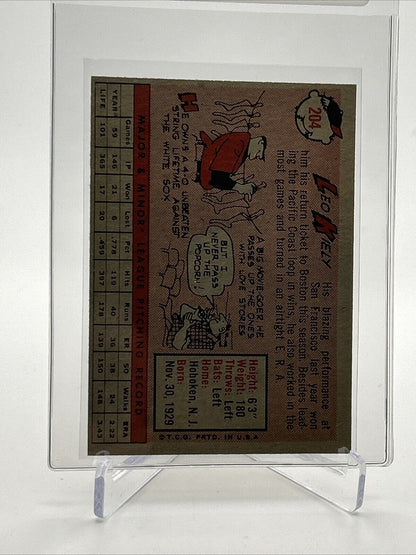 204
LEO KIELY
His blazing performance at
San Francisco last year won
him his return ticket to Boston this season. Besides lead-
ing the Pacific Coast loop in wins, he also worked in the
most games and turned in an alright E. R. A.
HE OWNS A 4-0 UNBEATEN
STRING LIFETIME AGAINST
THE WHITE SOX
A BIG MOVIE-GOER HE
PASSES UP THE ONES
WITH LOVE STORIES
BUT, I
NEVER PASS
UP THE
POPCORN!
Height: 6'3"
Weight: 180
Throws: Left
Bats: Left
Home:
Hoboken, N. J.
Born:
Nov. 30, 1929
© T.C.G. PRTD. IN U.S.A
MAJOR & MINOR LEAGUE PITCHING RECORD
Games IP Won Lost Pct Hits Runs ER SO Walks ERA
YEAR 59 146 21 6 .778 119 40 36 58 24 2.22
LIFE 101 365 17 20 .459 397 178 139 142 3.43